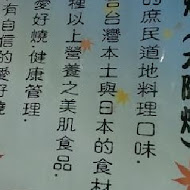 的庶民道地料理口味.
合台灣本土與日本的食材
種以上營養之美肌食品.
愛好燒.健康管理.
有自信的愛好燒